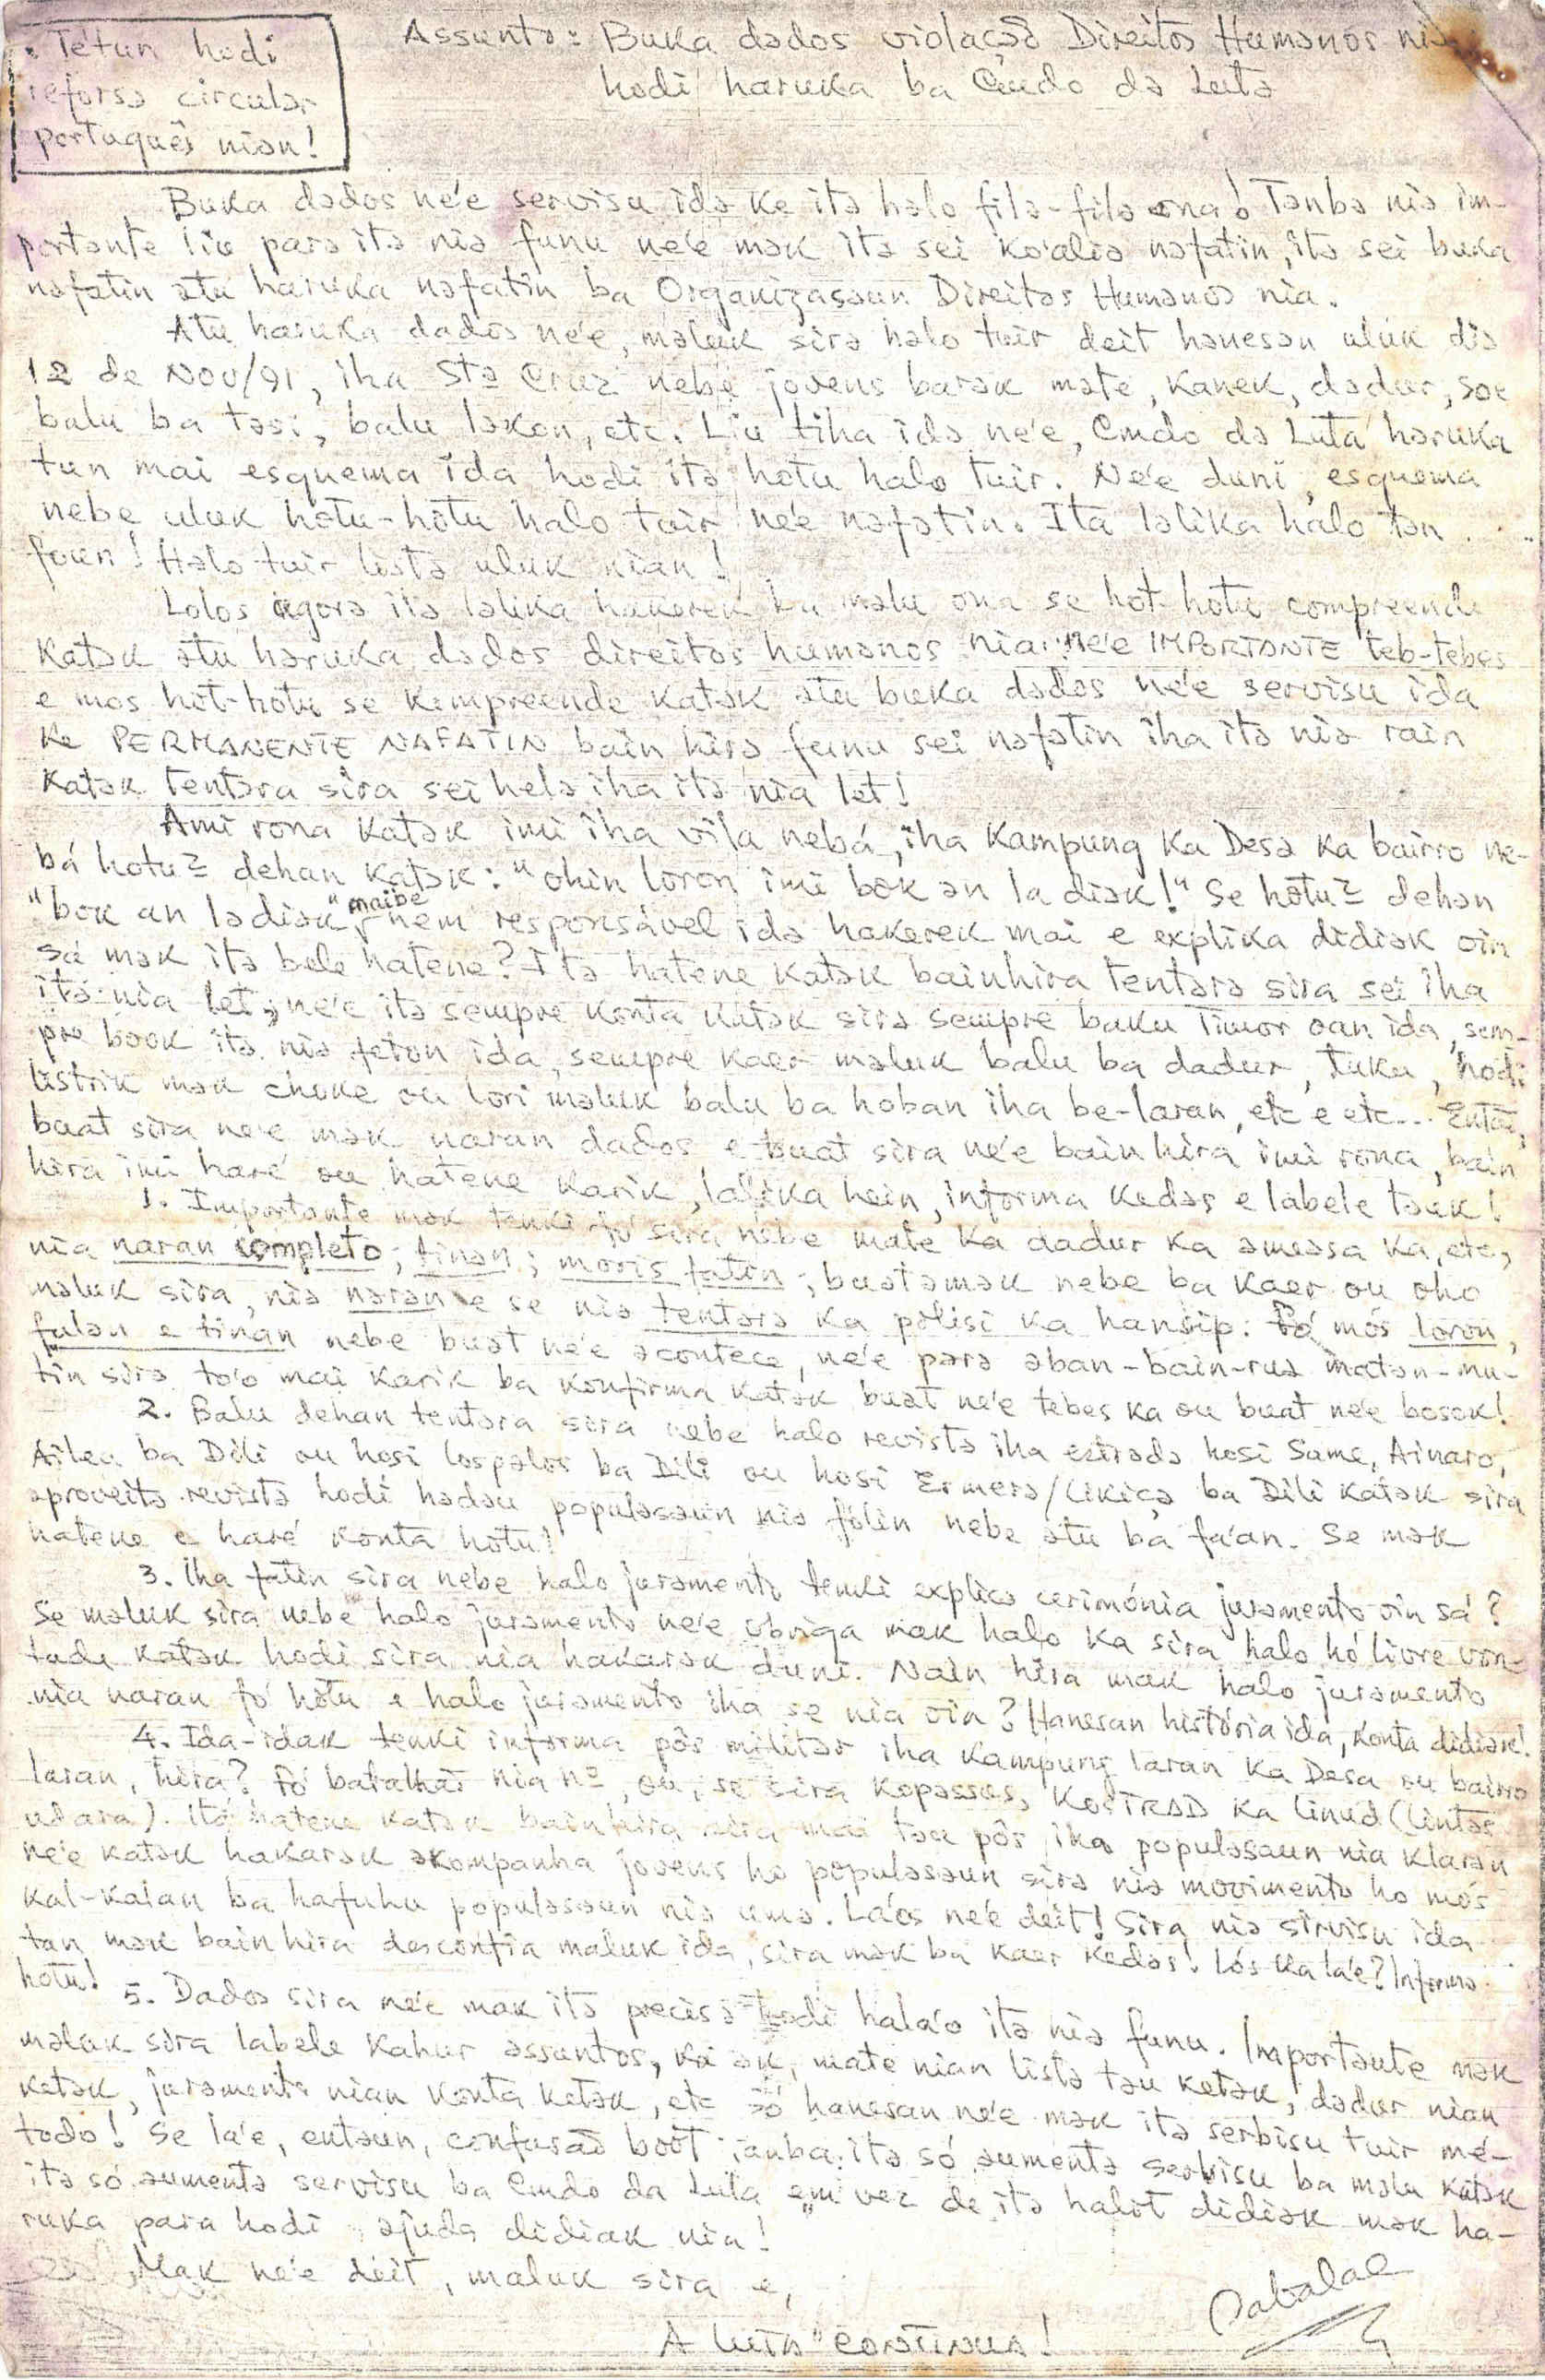 Tétun hodi
reforsa circular
português nian!
Assunto: Buka dados violação Direitos Humanos nia
hodi haruka ba Cmdo da Luta
Buka dados ne'e servisu ida ke ita halo fila-fila ona! Tanba nia im-
portante liu para ita nia funu ne'e mak ita sei ko'alia nafatin, ita sei buka
nafatin atu haruka nafatin ba Organizasaun Direitos Humanos nia.
Atu haruka dados ne'e, maluk sira halo tuir deit hanesan uluk dia
12 de Nov/91, iha Sta Cruz nebé jovens barak mate, kanek, dadur, soe
balu ba tasi, balu lakon, etc. Liu tiha ida ne'e, Cmdo da Luta haruka
tun mai esquema ida hodi ita hotu halo tuir. Ne'e duni, esquema
nebe uluk hotu-hotu halo tuir ne'e nafatin. Ita lalika halo tan
foun! Halo tuir lista uluk nian!
Lolos agora ita lalika hakerek ba malu ona se hot-hotu compreende
katak atu haruka dados direitos humanos nia: ne'e IMPORTANTE teb-tebes
e mos hot-hotu se kompreende katak atu buka dados ne'e servisu ida
ke PERMANENTE NAFATIN bain hira funu sei nafatin iha ita nia rain
katak tentara sira sei hela iha ita nia let!
Ami rona katak imi iha vila nebá, iha Kampung ka Desa ka bairro ne-
bá hotu² dehan katak: "ohin loron imi bok an la diak!" Se hotu² dehan
"bok an la diak" maibe nem responsável ida hakerek mai e explika didiak oin
sá mak ita bele hatene? Ita hatene katak bainhira tentara sira sei iha
ita nia let, ne'e ita sempre konta katak sira sempre baku Timor oan ida, sem-
pre book ita nia feton ida, sempre kaer maluk balu ba dadur, tuku, hodi
listrik mak choke ou lori maluk balu ba hoban iha be-laran, etc e etc... Entaõ,
buat sira ne'e mak naran dados e buat sira ne'e bain hira imi rona, bain
hira imi haré ou hatene karik, lalika hein, informa kedas e labele tauk!
1. Importante mak tenki fó sira nebe mate ka dadur ka ameasa ka, etc,
nia naran completo; tinan; moris fatin; buat a mak nebe ba kaer ou oho
maluk sira, nia naran e se nia tentara ka polisi ka hansip. Fó mós loron,
fulan e tinan nebe buat ne'e acontece, ne'e para aban-bain-rua matan-mu-
tin sira to'o mai karik ba konfirma katak buat ne'e tebes ka ou buat ne'e bosok!
2. Balu dehan tentara sira nebe halo revista iha estrada hosi Same, Ainaro,
Aileu ba Dili ou hosi Lospalos ba Dili ou hosi Ermera/Likiça ba Dili katak sira
aproveita revista hodi hadau populasaun nia fólin nebe atu bá fa'an. Se mak
hatene e haré konta hotu!
3. Iha fatin sira nebe halo juramento tenki explica cerimónia juramento oin sá?
Se maluk sira nebe halo juramento ne'e obriga mak halo ka sira halo hó livre von-
tade katak hodi sira nia hakarak duni. Nain hira mak halo juramento
nia naran fó hotu e halo juramento iha se nia oin? Hanesan história ida, konta didiak!
4. Ida-idak tenki informa pós militar iha Kampung laran ka Desa ou bairro
laran, hira? Fó batalhaõ nia nº, ou, se sira Kopassus, KOSTRAD ka Linud (Lintas
udara). Ita hatene katak bain hira sira mai tau pós iha populasaun nia klaran
ne'e katak hakarak akompanha jovens ho populasaun sira nia movimento ho mós
kal-kalan ba hafuhu populasaun nia uma. La'ós ne'e deit! Sira nia sirvisu ida
tan mak bain hira desconfia maluk ida, sira mak ba kaer kedas! Lós ka la'e? Informa
hotu!
5. Dados sira ne'e mak ita precisa hodi hala'o ita nia funu. Importante mak
maluk sira labele kahur assuntos, mate nian lista tau ketak, dadur nian
ketak, juramento nian konta ketak, etc só hanesan ne'e mak ita serbisu tuir mé-
todo! Se la'e, entaun, confusaõ boót tanba ita só aumenta serbisu ba malu katak
ita só aumenta servisu ba Cmdo da Luta em vez de ita halót didiak mak ha-
ruka para hodi ajuda didiak nia!
Mak ne'e deit, maluk sira e,
A luta continua!
Sabalae